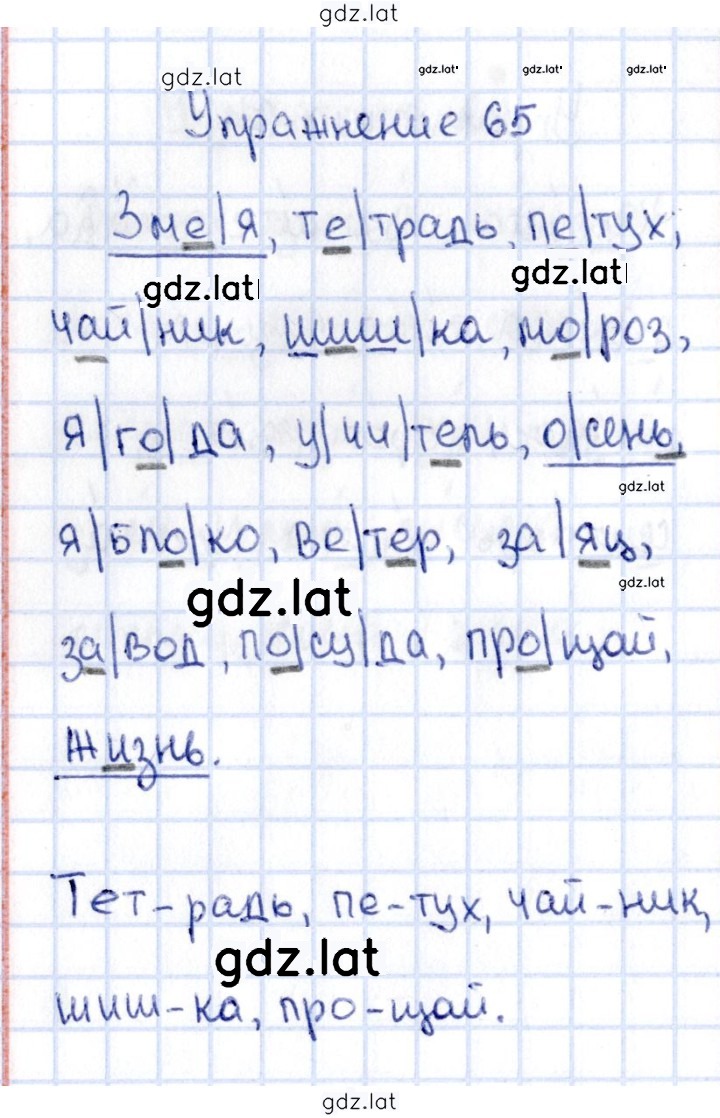 gdz.lat
gdz.lat gdz.lat gdz.lat gdz.lat
Упражнение 65
Зме|я, те|традь, пе|тух,
gdz.lat gdz.lat
чай|ник, шиш|ка, мо|роз,
я|го|да, у|чи|тель, о|сень,
gdz.lat
я|бло|ко, ве|тер, за|яц,
gdz.lat gdz.lat
за|вод, по|су|да, про|щай,
жизнь.
Тет-радь, пе-тух, чай-ник,
gdz.lat
шиш-ка, про-щай.
gdz.lat